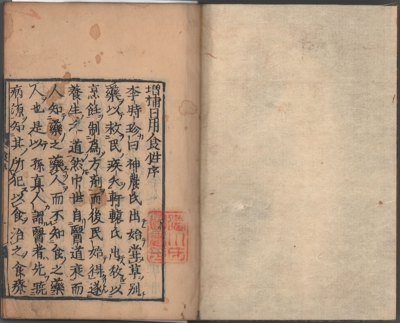 増補日用食性序
李時珍曰神農氏出始嘗草別
藥以救民疾夭軒轅氏出教以
烹飪制為方劑而後民始得遂
養生之道然中世自醫道衰而
人知藥之藥人而不知食之藥
人也是以孫真人謂醫者先暁
病源知其所犯以食治之食療